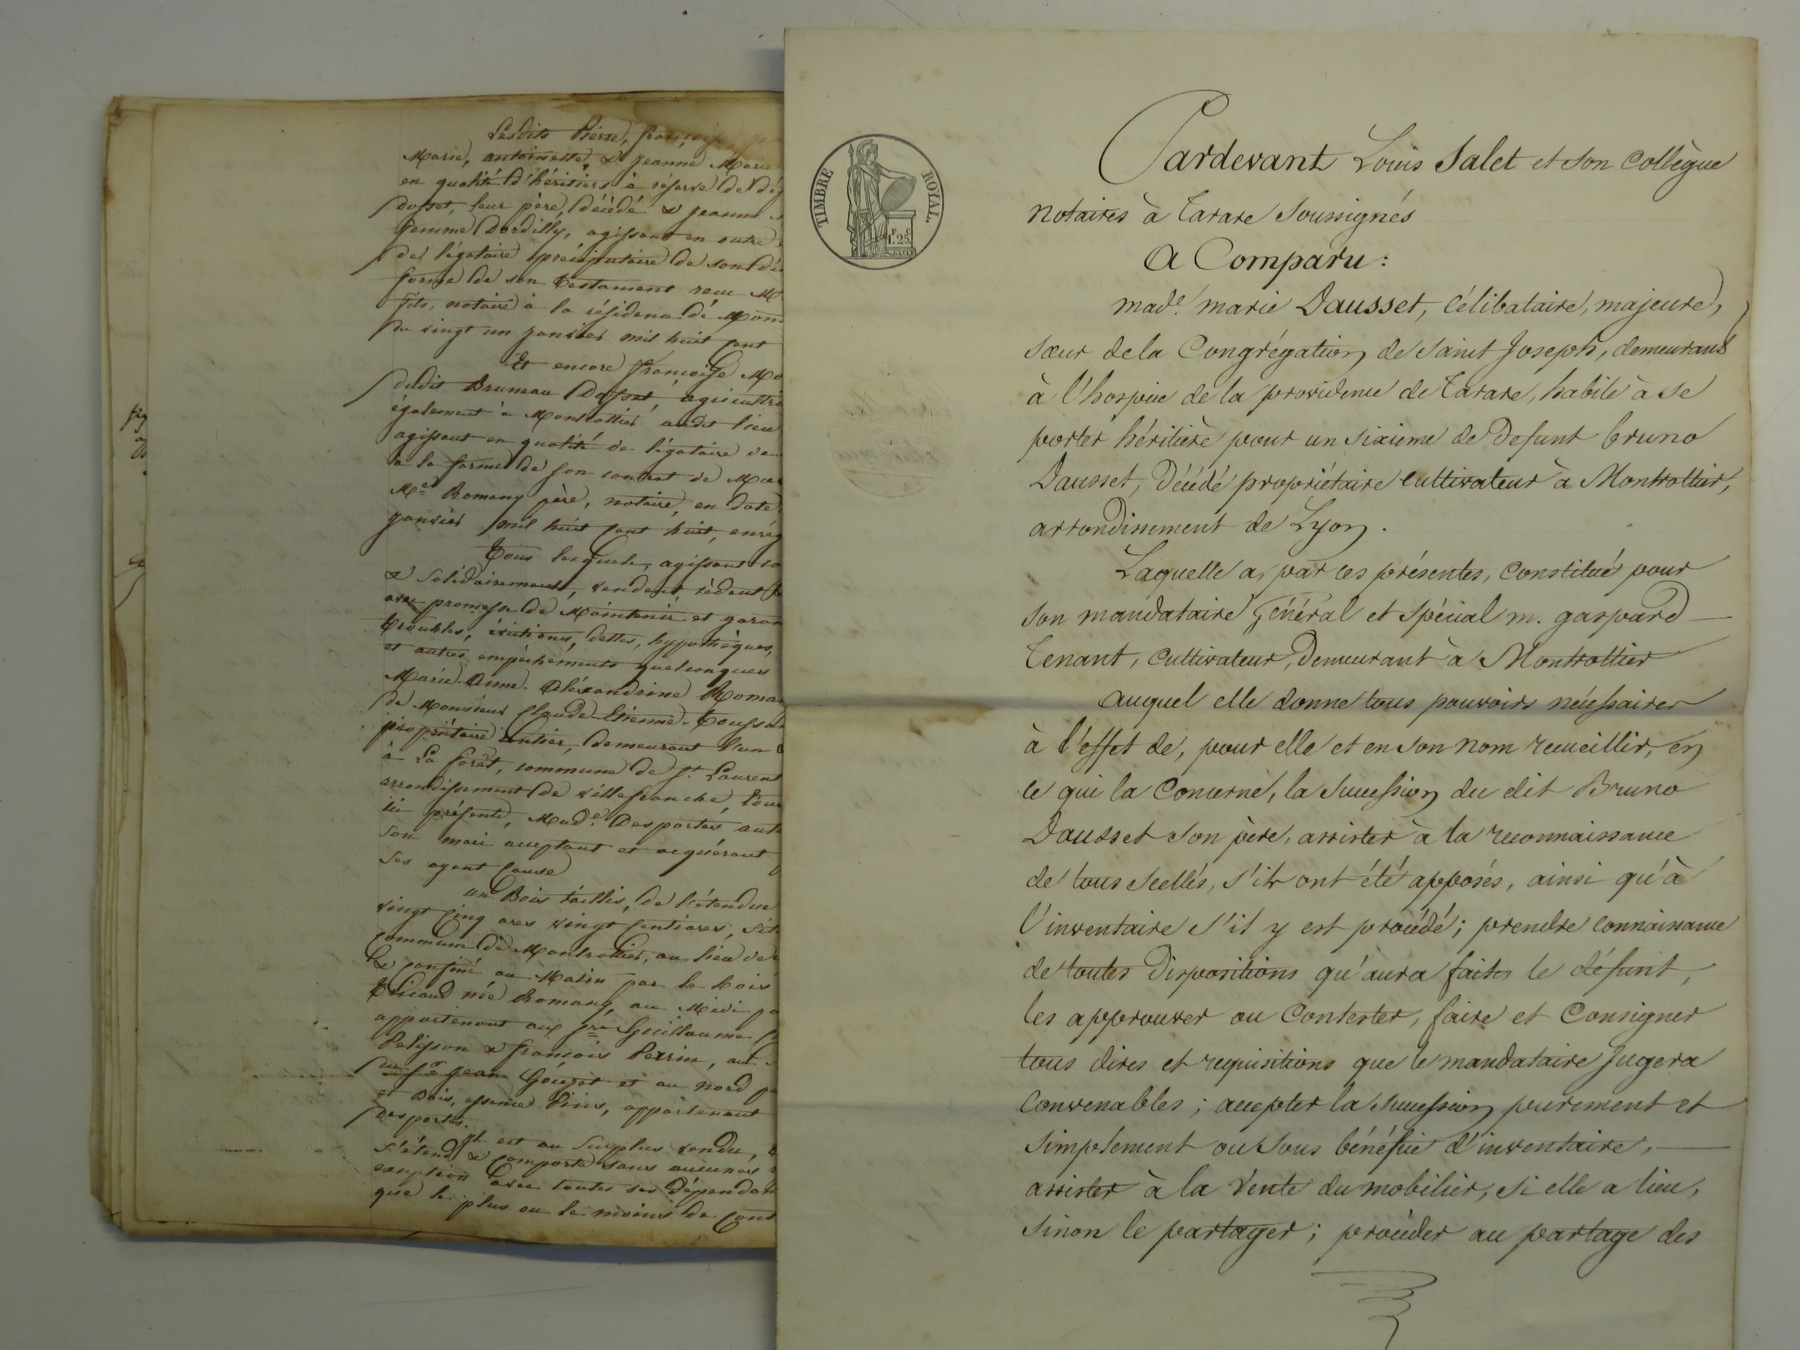 Lesdits Pierre, françoise
Marie, antoinette, & Jeanne Marie
en qualité d'héritiers à réserve de
Dosset, leur père, décédé & Jeanne
femme Dardilly, agissant en outre
de légataire préciputaire de son
forme de son testament reçu Me
fils, notaire à la résidence de Mon
du vingt un janvier mil huit cent
Et encore françoise
dudit Bruneau Dosset, agriculteur
également à Montrottier audit lieu
agissant en qualité de légataire de
à la forme de son contrat de Mar
Me Romany père, notaire, en date
janvier mil huit cent huit, enreg
Tous lesquels, agissant
& solidairement, vendent, cèdent
avec promesse de Maintenir et garan
troubles, évictions, dettes, hypothèques,
et autres empêchements quelconques
Marie-Anne-Alexandrine Roma
de Monsieur Claude-Etienne-Toussa
propriétaire rentier, demeurant
à La forêt, commune de St. Laurent
arrondissement de Villefranche,
ici présente, Made. Desportes
son mari acceptant et acquérant
ses ayant cause
un Bois taillis, de l'étendue
vingt cinq ares vingt centiares,
commune de Montrottier, au lieu de
& confiné au Matin par le bois
née Romany, au Midi
appartenant aux Guillaume
Pelisson & françois Perrin, au
jean et au nord
et Bois, essence Pins, appartenant
Desportes.
est au surplus vendu,
s'étend & comporte sans aucunes
exception avec toutes ses dépendan
que le plus ou le moins de cont
TIMBRE ROYAL.
1. 25
Pardevant Louis Salet et son Collègue
notaires à Tarare Soussignés
A Comparu :
made. marie Dausset, célibataire, majeure,
sœur de la Congrégation de Saint Joseph, demeurant
à l'hospice de la providence de Tarare, habile à se
porter héritière pour un sixieme de Defunt bruno
Dausset, Décédé propriétaire cultivateur à Montrottier,
arrondissement de Lyon.
Laquelle a, par ces présentes, constitué pour
son mandataire général et spécial m. gaspard
Tenant, cultivateur, Demeurant à Montrottier
auquel elle donne tous pouvoirs nécessaires
à l'effet de, pour elle et en son nom recueillir, en
ce qui la Concerne, la Succession du dit Bruno
Dausset son père, assister à la reconnaissance
de tous scellés, s'ils ont été apposés, ainsi qu'à
l'inventaire s'il y est procédé; prendre connaissance
de toutes Dispositions qu'aura faites le défunt,
les approuver ou Contester, faire et Consigner
tous dires et requisitions que le mandataire Jugera
Convenables; accepter la Succession purement et
simplement ou sous bénéfice d'inventaire,
assister à la Vente du mobilier, si elle a lieu,
sinon le partager; procéder au partage des